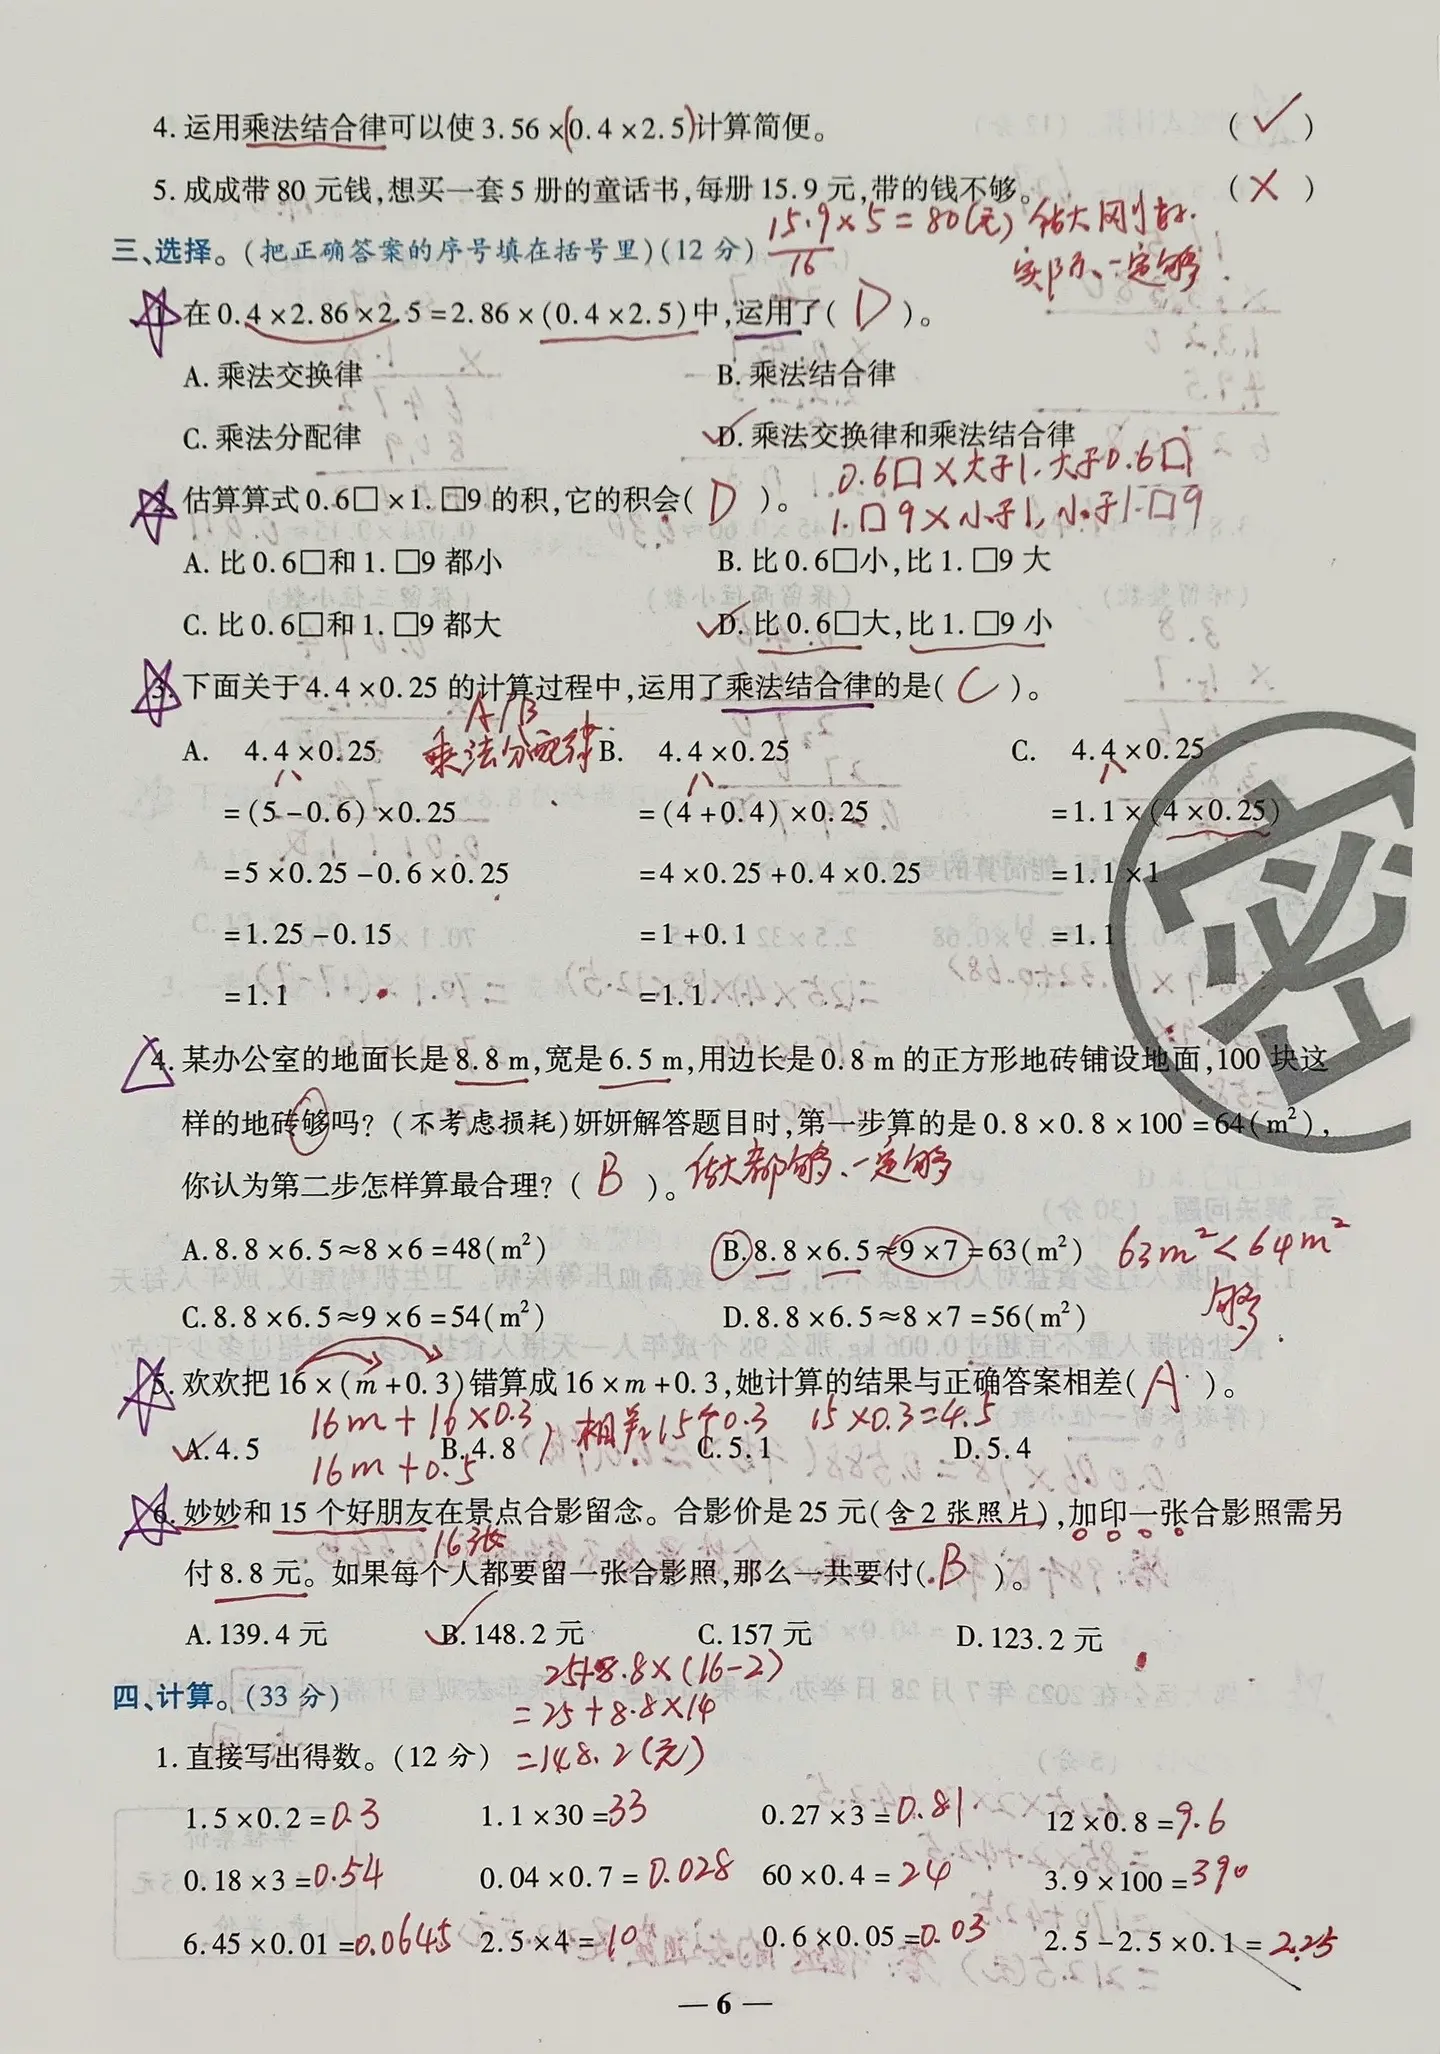 4.运用乘法结合律可以使3.56×(0.4×2.5)计算简便。 (✓)
5.成成带80元钱,想买一套5册的童话书,每册15.9元,带的钱不够。 (×)
15.9×5=80(元) 估大刚好.
16 实际一定够.
三、选择。(把正确答案的序号填在括号里)(12分)
1.在0.4×2.86×2.5=2.86×(0.4×2.5)中,运用了( D )。
A.乘法交换律 B.乘法结合律
C.乘法分配律 ✓D.乘法交换律和乘法结合律
0.6□×大于1,大于0.6□
2.估算算式0.6□×1.□9的积,它的积会( D )。
1.□9×小于1,小于1.□9
A.比0.6□和1.□9都小 B.比0.6□小,比1.□9大
C.比0.6□和1.□9都大 ✓D.比0.6□大,比1.□9小
3.下面关于4.4×0.25的计算过程中,运用了乘法结合律的是( C )。
A/B
乘法分配律
A. 4.4×0.25 B. 4.4×0.25 C. 4.4×0.25
=(5-0.6)×0.25 =(4+0.4)×0.25 =1.1×(4×0.25)
=5×0.25-0.6×0.25 =4×0.25+0.4×0.25 =1.1×1
=1.25-0.15 =1+0.1 =1.1
=1.1 =1.1
密
4.某办公室的地面长是8.8 m,宽是6.5 m,用边长是0.8 m的正方形地砖铺设地面,100块这
样的地砖够吗?(不考虑损耗)妍妍解答题目时,第一步算的是0.8×0.8×100=64(m²),
你认为第二步怎样算最合理?( B )。 估大都够、一定够
A.8.8×6.5≈8×6=48(m²) B.8.8×6.5≈9×7=63(m²) 63m²<64m²
够.
C.8.8×6.5≈9×6=54(m²) D.8.8×6.5≈8×7=56(m²)
5.欢欢把16×(m+0.3)错算成16×m+0.3,她计算的结果与正确答案相差( A )。
16m+16×0.3 相差15个0.3 15×0.3=4.5
✓A.4.5 B.4.8 C.5.1 D.5.4
16m+0.5
6.妙妙和15个好朋友在景点合影留念。合影价是25元(含2张照片),加印一张合影照需另
16张
付8.8元。如果每个人都要留一张合影照,那么一共要付( B )。
A.139.4元 ✓B.148.2元 C.157元 D.123.2元
25+8.8×(16-2)
=25+8.8×14
=148.2(元)
四、计算。(33分)
1.直接写出得数。(12分)
1.5×0.2=0.3 1.1×30=33 0.27×3=0.81 12×0.8=9.6
0.18×3=0.54 0.04×0.7=0.028 60×0.4=24 3.9×100=390
6.45×0.01=0.0645 2.5×4=10 0.6×0.05=0.03 2.5-2.5×0.1=2.25
— 6 —